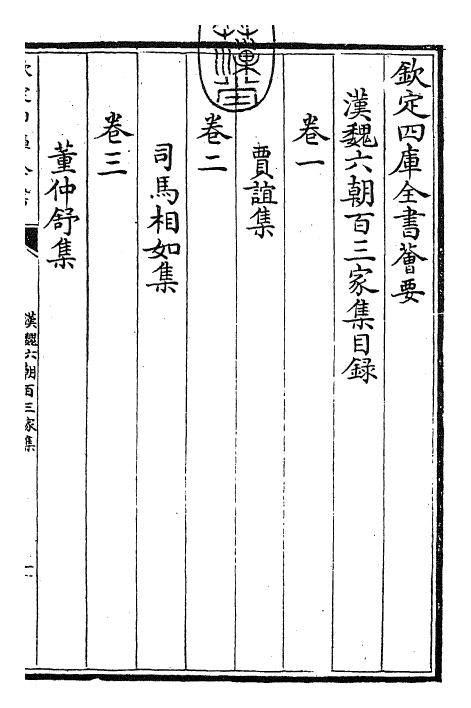 欽定四庫全書薈要
漢魏六朝百三家集目録
卷一
賈誼集
卷二
司馬相如集
卷三
董仲舒集
漢魏六朝百三家集